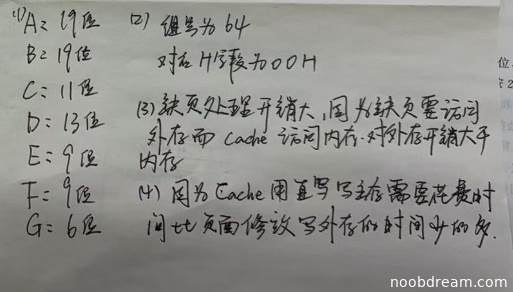 (1) A: 19位
B: 19位
C: 11位
D: 13位
E: 9位
F: 9位
G: 6位
(2) 组号为 64
对应 H字段为00H
(3) 缺页处理开销大,因为缺页要访问
外存而 Cache 访问内存.对外存开销大于
内存
(4) 因为 Cache 用直写 写主存需要花费时
间比页面修改写外存的时间少的多.
位.
noobdream.com